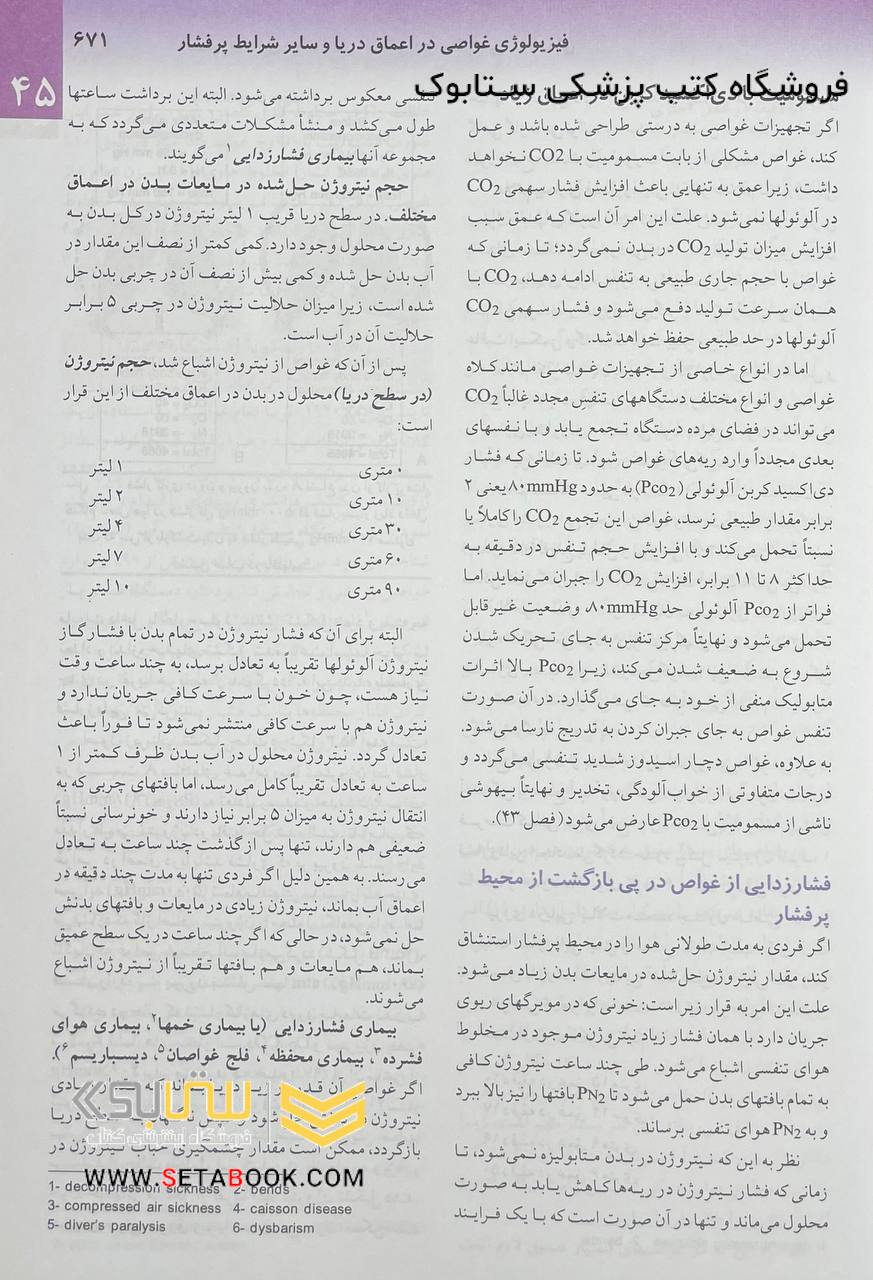 فیزیولوژی غواصی در اعماق دریا و سایر شرایط پرفشار ۶۷۱
۴۵
فروشگاه کتب پزشکی ستابوک
اگر تجهیزات غواصی به درستی طراحی شده باشد و عمل
کند، غواص مشکلی از بابت مسمومیت با CO2 نخواهد
داشت، زیرا عمق به تنهایی باعث افزایش فشار سهمی CO2
در آلوئولها نمی‌شود. علت این امر آن است که عمق سبب
افزایش میزان تولید CO2 در بدن نمی‌گردد؛ تا زمانی که
غواص با حجم جاری طبیعی به تنفس ادامه دهد، CO2 با
همان سرعت تولید دفع می‌شود و فشار سهمی CO2
آلوئولها در حد طبیعی حفظ خواهد شد.
اما در انواع خاصی از تجهیزات غواصی مانند کلاه
غواصی و انواع مختلف دستگاههای تنفسِ مجدد غالباً CO2
می‌تواند در فضای مرده دستگاه تجمع یابد و با نفسهای
بعدی مجدداً وارد ریه‌های غواص شود. تا زمانی که فشار
دی‌اکسید کربن آلوئولی (Pco2) به حدود ۸۰mmHg یعنی ۲
برابر مقدار طبیعی نرسد، غواص این تجمع CO2 را کاملاً یا
نسبتاً تحمل می‌کند و با افزایش حجم تنفس در دقیقه به
حداکثر ۸ تا ۱۱ برابر، افزایش CO2 را جبران می‌نماید. اما
فراتر از Pco2 آلوئولی حد ۸۰mmHg، وضعیت غیرقابل
تحمل می‌شود و نهایتاً مرکز تنفس به جای تحریک شدن
شروع به ضعیف شدن می‌کند، زیرا Pco2 بالا اثرات
متابولیک منفی از خود به جای می‌گذارد. در آن صورت
تنفس غواص به جای جبران کردن به تدریج نارسا می‌شود.
به علاوه، غواص دچار اسیدوز شدید تنفسی می‌گردد و
درجات متفاوتی از خواب‌آلودگی، تخدیر و نهایتاً بیهوشی
ناشی از مسمومیت با Pco2 عارض می‌شود (فصل ۴۳).
فشارزدایی از غواص در پی بازگشت از محیط
پرفشار
اگر فردی به مدت طولانی هوا را در محیط پرفشار استنشاق
کند، مقدار نیتروژن حل‌شده در مایعات بدن زیاد می‌شود.
علت این امر به قرار زیر است: خونی که در مویرگهای ریوی
جریان دارد با همان فشار زیاد نیتروژن موجود در مخلوط
هوای تنفسی اشباع می‌شود. طی چند ساعت نیتروژن کافی
به تمام بافتهای بدن حمل می‌شود تا PN2 بافتها را نیز بالا ببرد
و به PN2 هوای تنفسی برساند.
نظر به این که نیتروژن در بدن متابولیزه نمی‌شود، تا
زمانی که فشار نیتروژن در ریه‌ها کاهش یابد به صورت
محلول می‌ماند و تنها در آن صورت است که با یک فرایند
تنفسی معکوس برداشته می‌شود. البته این برداشت ساعتها
طول می‌کشد و منشأ مشکلات متعددی می‌گردد که به
مجموعه آنها بیماری فشارزدایی۱ می‌گویند.
حجم نیتروژن حل‌شده در مایعات بدن در اعماق
مختلف. در سطح دریا قریب ۱ لیتر نیتروژن در کل بدن به
صورت محلول وجود دارد. کمی کمتر از نصف این مقدار در
آب بدن حل شده و کمی بیش از نصف آن در چربی بدن حل
شده است، زیرا میزان حلالیت نیتروژن در چربی ۵ برابر
حلالیت آن در آب است.
پس از آن که غواص از نیتروژن اشباع شد، حجم نیتروژن
(در سطح دریا) محلول در بدن در اعماق مختلف از این قرار
است:
۰ متری ۱ لیتر
۱۰ متری ۲ لیتر
۳۰ متری ۴ لیتر
۶۰ متری ۷ لیتر
۹۰ متری ۱۰ لیتر
البته برای آن که فشار نیتروژن در تمام بدن با فشار گاز
نیتروژن آلوئولها تقریباً به تعادل برسد، به چند ساعت وقت
نیاز هست، چون خون با سرعت کافی جریان ندارد و
نیتروژن هم با سرعت کافی منتشر نمی‌شود تا فوراً باعث
تعادل گردد. نیتروژن محلول در آب بدن ظرف کمتر از ۱
ساعت به تعادل تقریباً کامل می‌رسد، اما بافتهای چربی که به
انتقال نیتروژن به میزان ۵ برابر نیاز دارند و خونرسانی نسبتاً
ضعیفی هم دارند، تنها پس از گذشت چند ساعت به تعادل
می‌رسند. به همین دلیل اگر فردی تنها به مدت چند دقیقه در
اعماق آب بماند، نیتروژن زیادی در مایعات و بافتهای بدنش
حل نمی‌شود، در حالی که اگر چند ساعت در یک سطح عمیق
بماند، هم مایعات و هم بافتها تقریباً از نیتروژن اشباع
می‌شوند.
بیماری فشارزدایی (یا بیماری خمها۲، بیماری هوای
فشرده۳، بیماری محفظه۴، فلج غواصان۵، دیسباریسم۶).
اگر غواصی آن قدر در زیر دریا بماند که مقدار زیادی
نیتروژن در
بازگردد، ممکن است مقدار چشمگیری حباب نیتروژن در
ستابوک
فروشگاه اینترنتی کتاب
WWW.SETABOOK.COM
1- decompression sickness 2- bends
3- compressed air sickness 4- caisson disease
5- diver's paralysis 6- dysbarism